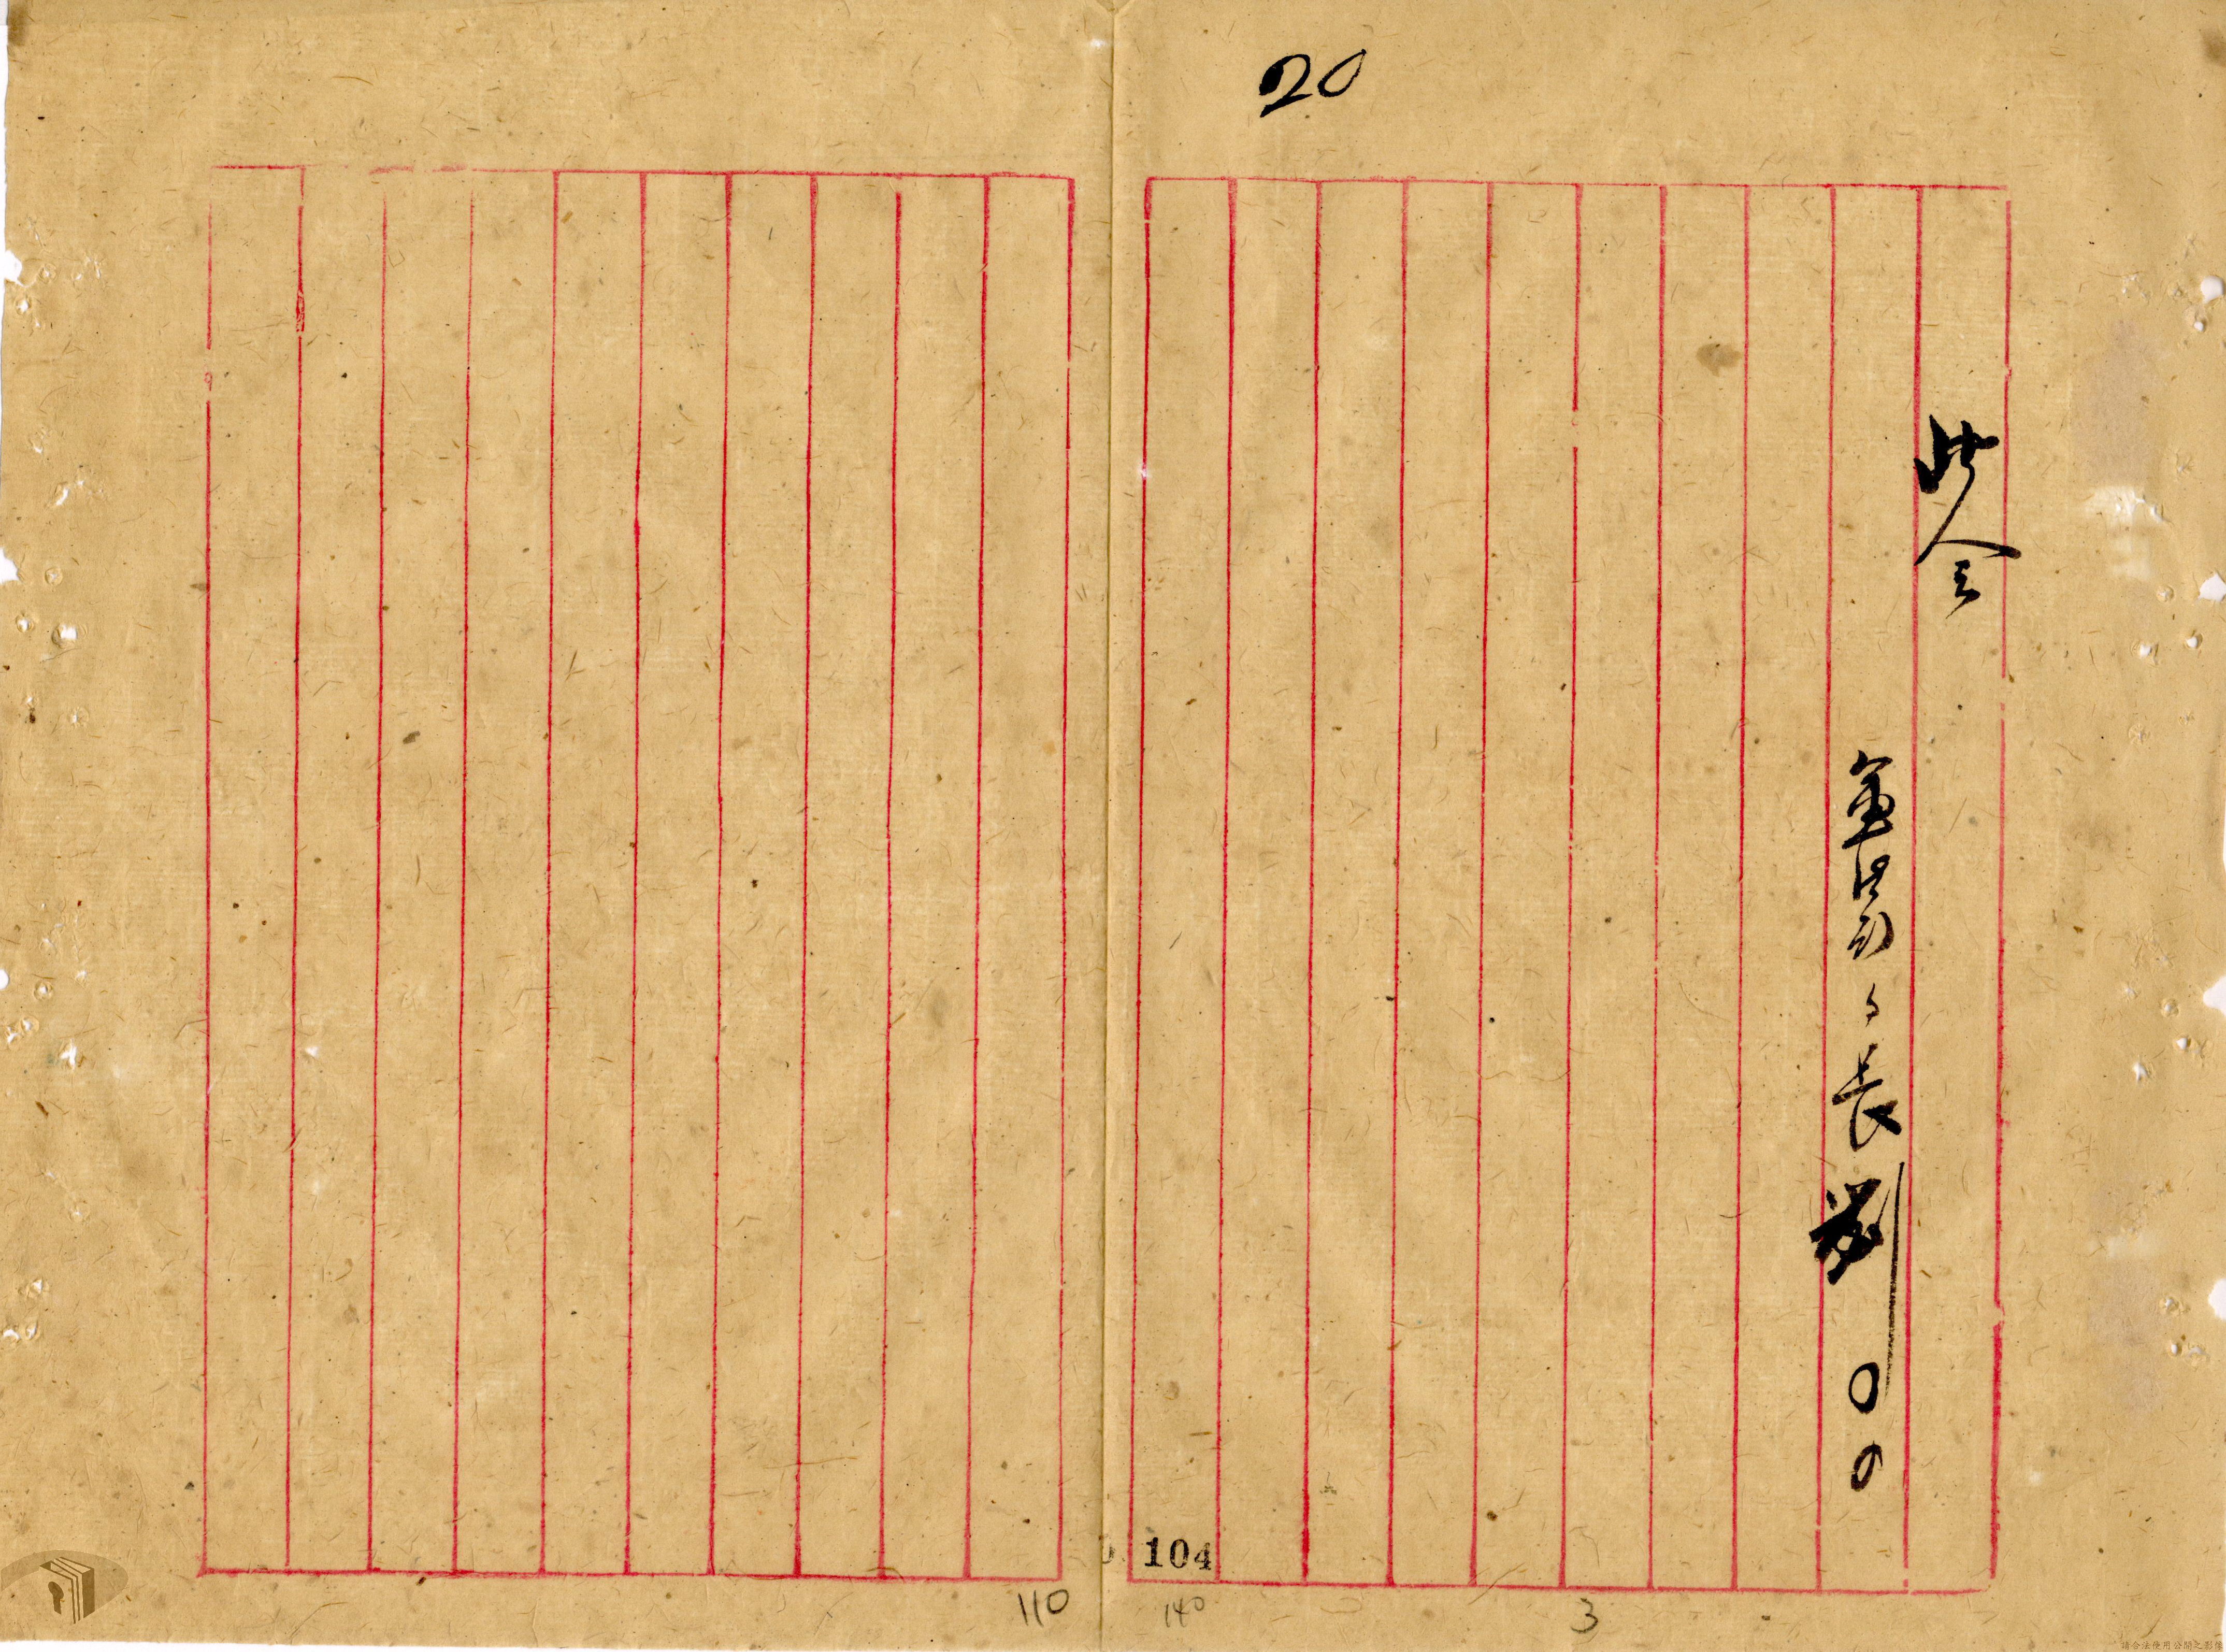 20
此令
兼署、長劉〇〇
104
110
140
3
請合法使用公開之影像